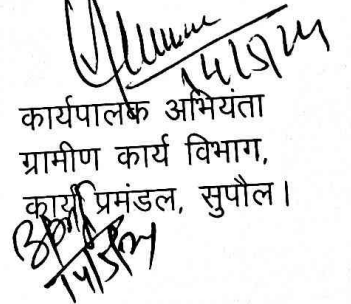 14/5/24
कार्यपालक अभियंता
ग्रामीण कार्य विभाग,
कार्य प्रमंडल, सुपौल।
14/5/24